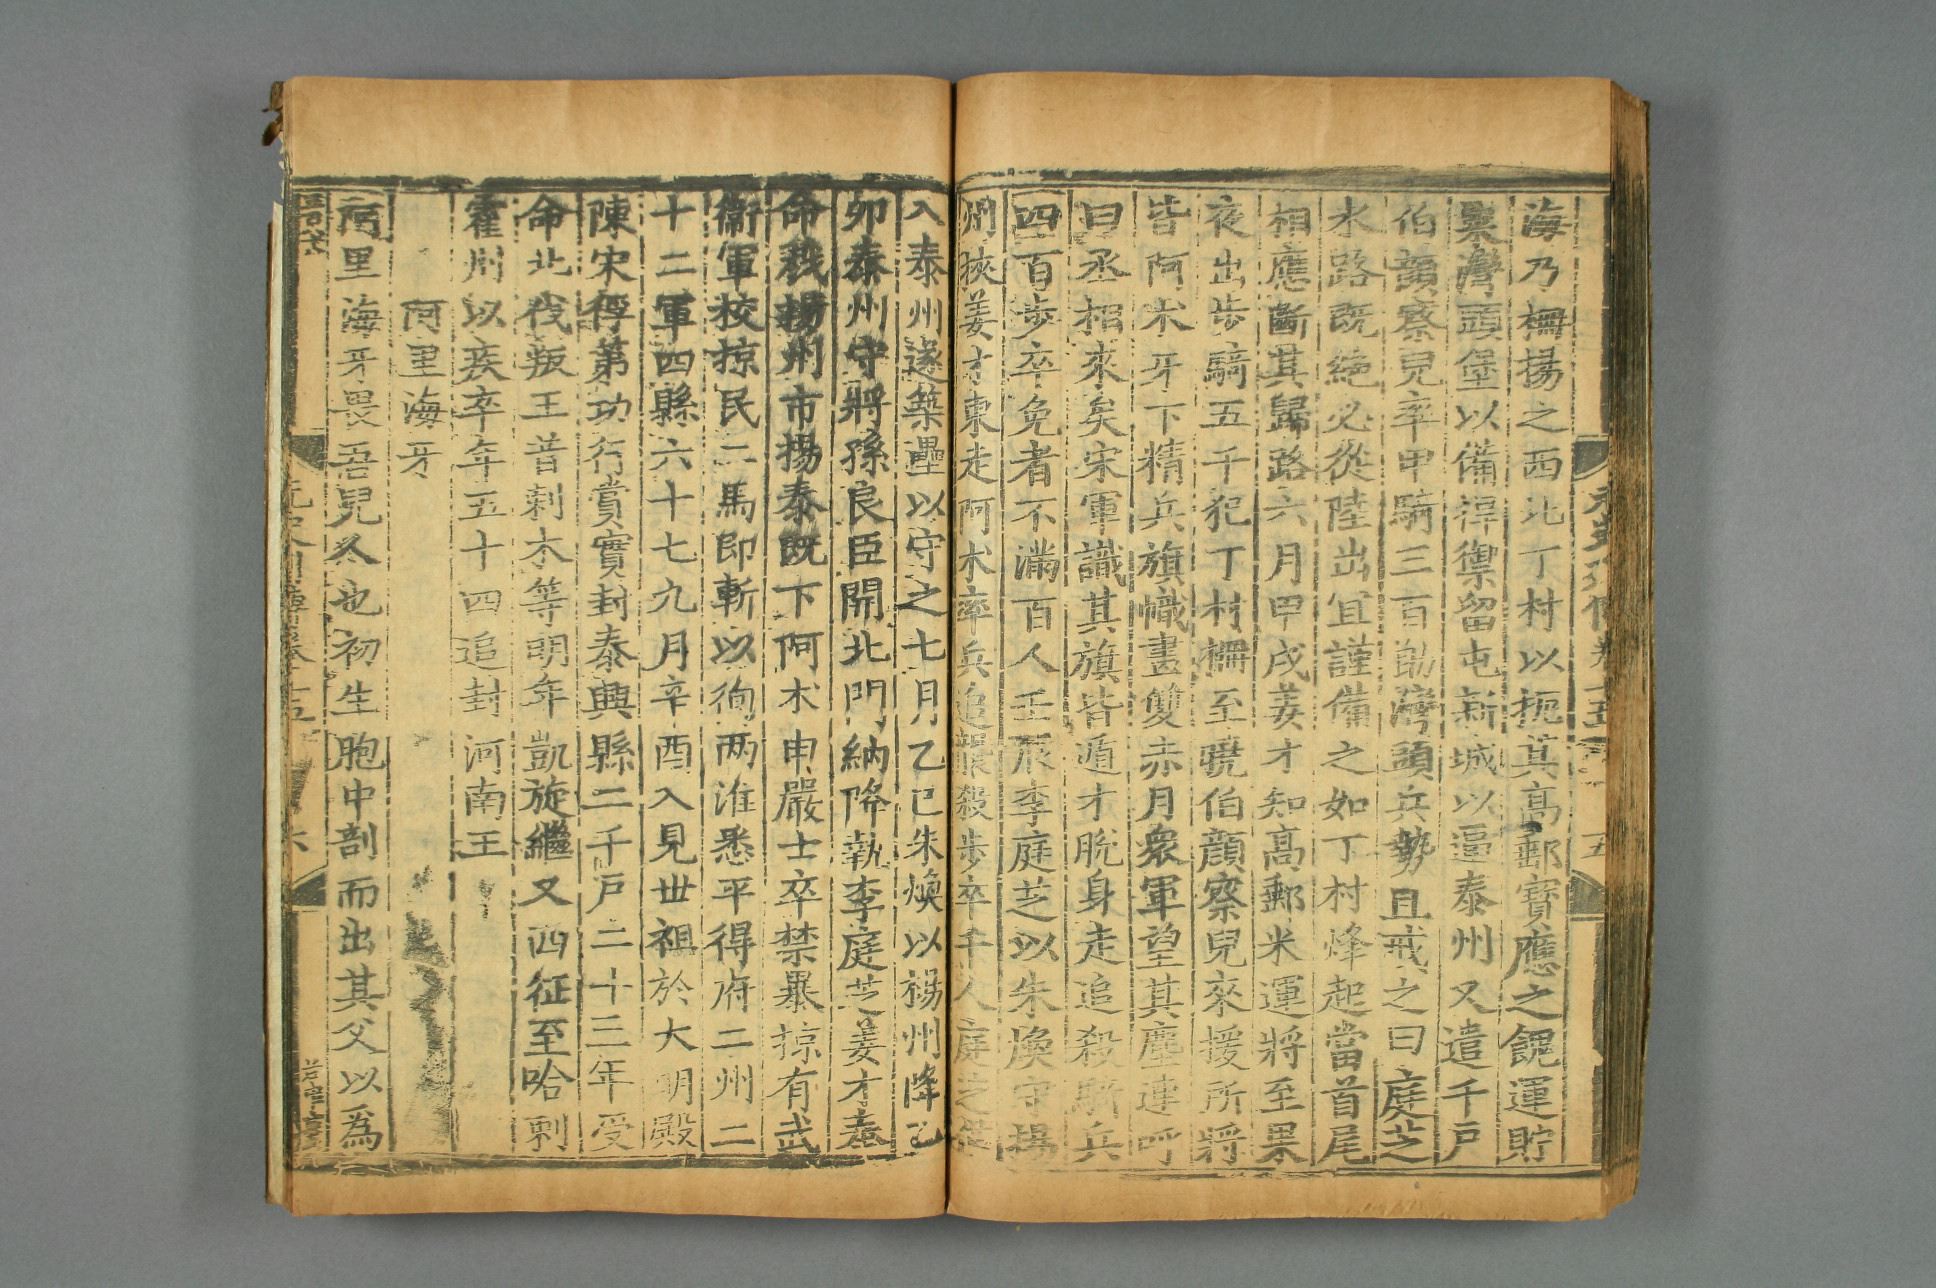 海乃柵揚之西北丁村以扼其高郵寶應之餽運貯
粟灣頭堡以備捍禦留屯新城以逼泰州又遣千戶
伯顏察兒率甲騎三百助灣頭兵勢且戒之曰庭芝
水路旣絶必從陸出宜謹備之如丁村烽起當首尾
相應斷其歸路六月甲戌姜才知高郵米運將至果
夜出步騎五千犯丁村柵至曉伯顏察兒來援所將
皆阿朮牙下精兵旗幟畫雙赤月衆軍望其塵連呼
曰丞相來矣宋軍識其旗皆遁才脫身走追殺騎兵
四百步卒免者不滿百人壬辰李庭芝以朱煥守揚
州挾姜才東走阿朮率兵追襲殺步卒千人庭芝僅
入泰州遂築壘以守之七月乙巳朱煥以揚州降乙
卯泰州守將孫良臣開北門納降執李庭芝姜才奉
命戮揚州市揚泰既下阿朮申嚴士卒禁暴掠有武
衞軍校掠民二馬即斬以徇两淮悉平得府二州二
十二軍四縣六十七九月辛酉入見世祖於大明殿
陳宋俘第功行賞實封泰興縣二千戶二十三年受
命北伐叛王昔剌木等明年凱旋繼又西征至哈剌
霍州以疾卒年五十四追封河南王
阿里海牙
阿里海牙畏吾兒人也初生胞中剖而出其父以為
元史列傳卷十五
六